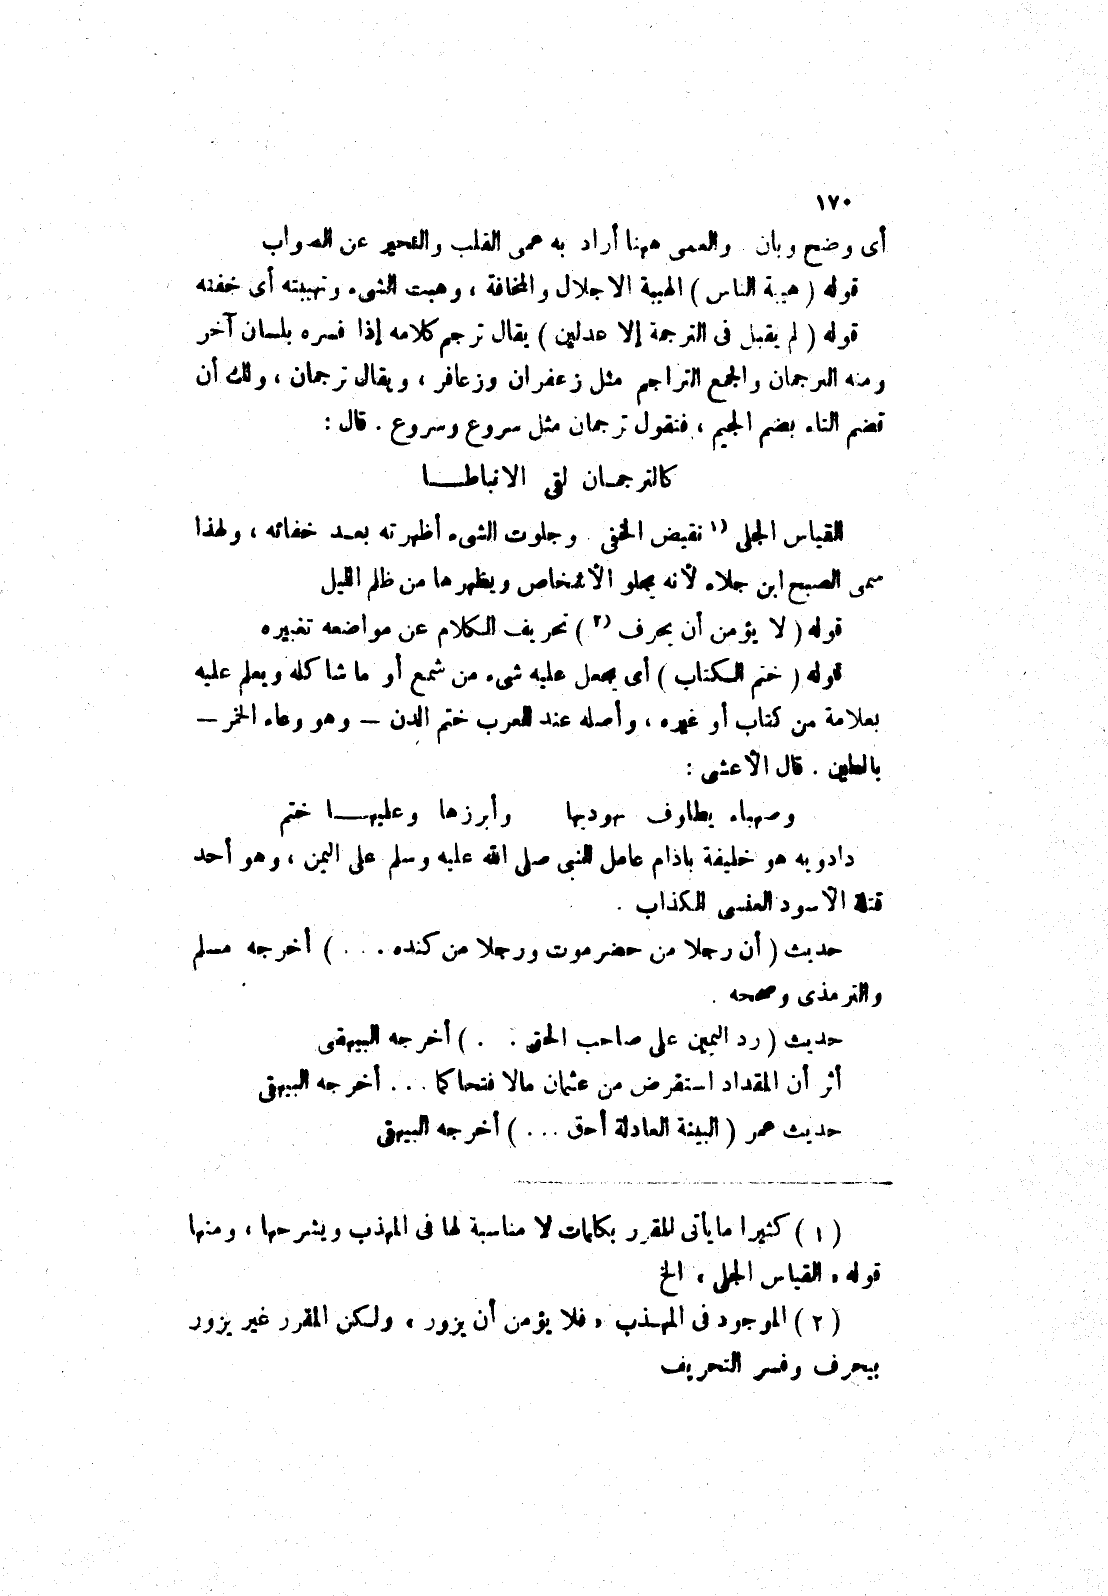 ١٧٠
أى وضح وبان . والعمى ههنا أراد به عمى القلب والتحير عن الصواب
قوله ( هيبة الناس ) الهيبة الاجلال والمخافة ، وهبت الشىء وتهيبته أى خفته
قوله ( لم يقبل فى الترجمة إلا عدلين ) يقال ترجم كلامه إذا فسره بلسان آخر
ومنه الترجمان والجمع التراجم مثل زعفران وزعافر ، ويقال ترجمان ، ولك أن
تضم التاء بضم الجيم ، فتقول ترجمان مثل سروع وسروع . قال :
كالترجمـان لقى الانباطـــا
القياس الجلى (١ نقيض الخفى . وجلوت الشىء أظهرته بعـد خفائه ، ولهذا
سمى الصبح ابن جلاء لأنه يجلو الأشخاص ويظهرها من ظلم الليل
قوله ( لا يؤمن أن يحرف (٢ ) تحريف الكلام عن مواضعه تغييره
قوله ( ختم الكتاب ) أى يجعل عليه شىء من شمع أو ما شاكله ويعلم عليه
بعلامة من كتاب أو غيره ، وأصله عند العرب ختم الدن – وهو وعاء الخمر –
بالطين . قال الأعشى :
وصهباء يطاوف يهوديها وأبرزها وعليهـــا ختم
دادويه هو خليفة باذام عامل النبى صلى الله عليه وسلم على اليمن ، وهو أحد
قتلة الأسود العنسى الكذاب .
حديث ( أن رجلا من حضرموت ورجلا من كنده . . . ) أخرجه مسلم
والترمذى وصححه .
حديث ( رد اليمين على صاحب الحق . . ) أخرجه البيهقى
أثر أن المقداد استقرض من عثمان مالا فتحاكما . . . أخرجه البيهقى
حديث عمر ( البينة العادلة أحق . . . ) أخرجه البيهقى
( ١ ) كثيرا ما يأتى المقرر بكلمات لا مناسبة لها فى المهذب ويشرحها ، ومنها
قوله « القياس الجلى » الخ
( ٢ ) الموجود فى المهـذب « فلا يؤمن أن يزور » ولـكن المقرر غير يزور
بيحرف وفسر التحريف